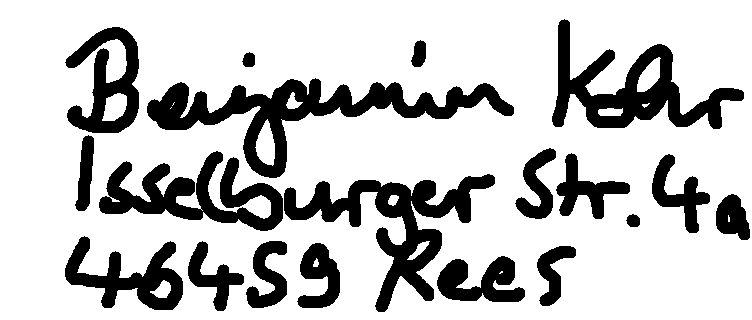 Benjamin Kohr
Isselburger Str. 4a
46459 Rees